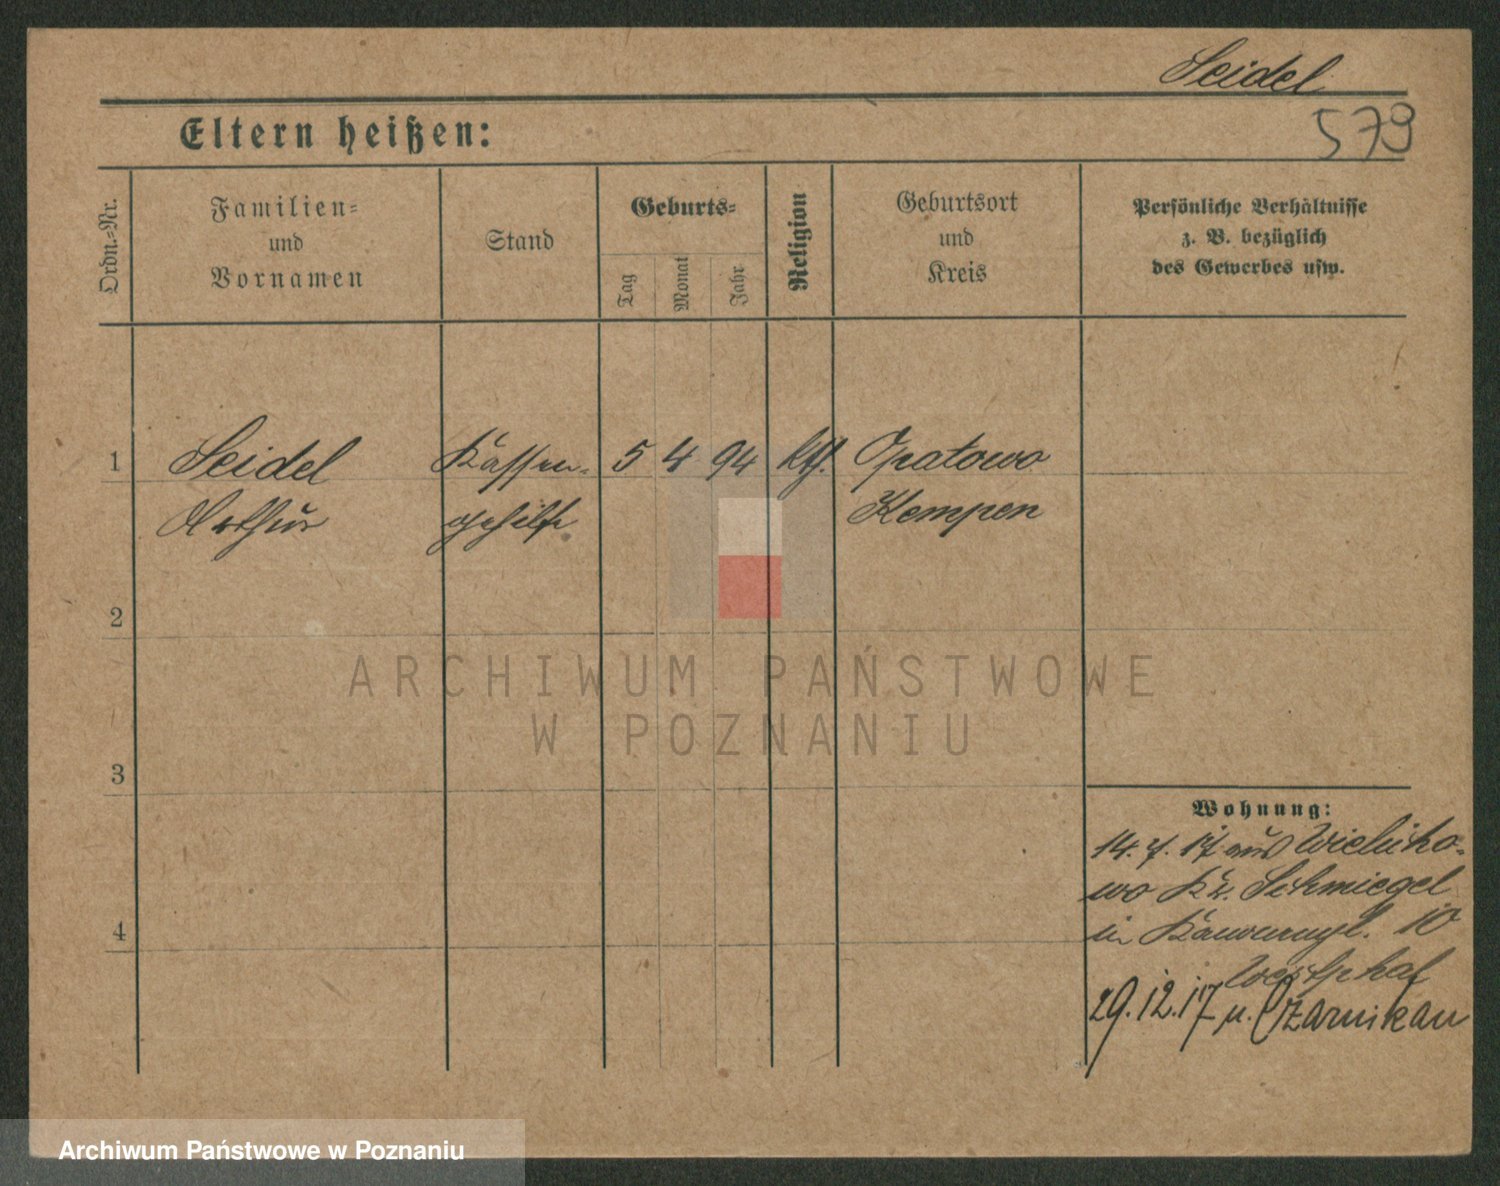 Seidel
579
Eltern heißen:
Ordn.-Nr.
Familien-
und
Vornamen
Stand
Geburts-
Tag
Monat
Jahr
Religion
Geburtsort
und
Kreis
Persönliche Verhältnisse
z. B. bezüglich
des Gewerbes usw.
1 Seidel Kassen- 5 4 94 Opatowo
Arthur gehilfe Kempen
2
3
4
ARCHIWUM PAŃSTWOWE
W POZNANIU
Wohnung:
14. 7. 17 aus Wielicho-
wo Kr. Schmiegel
in 10
Westphal
29.12.17 n. Czarnikau
Archiwum Państwowe w Poznaniu